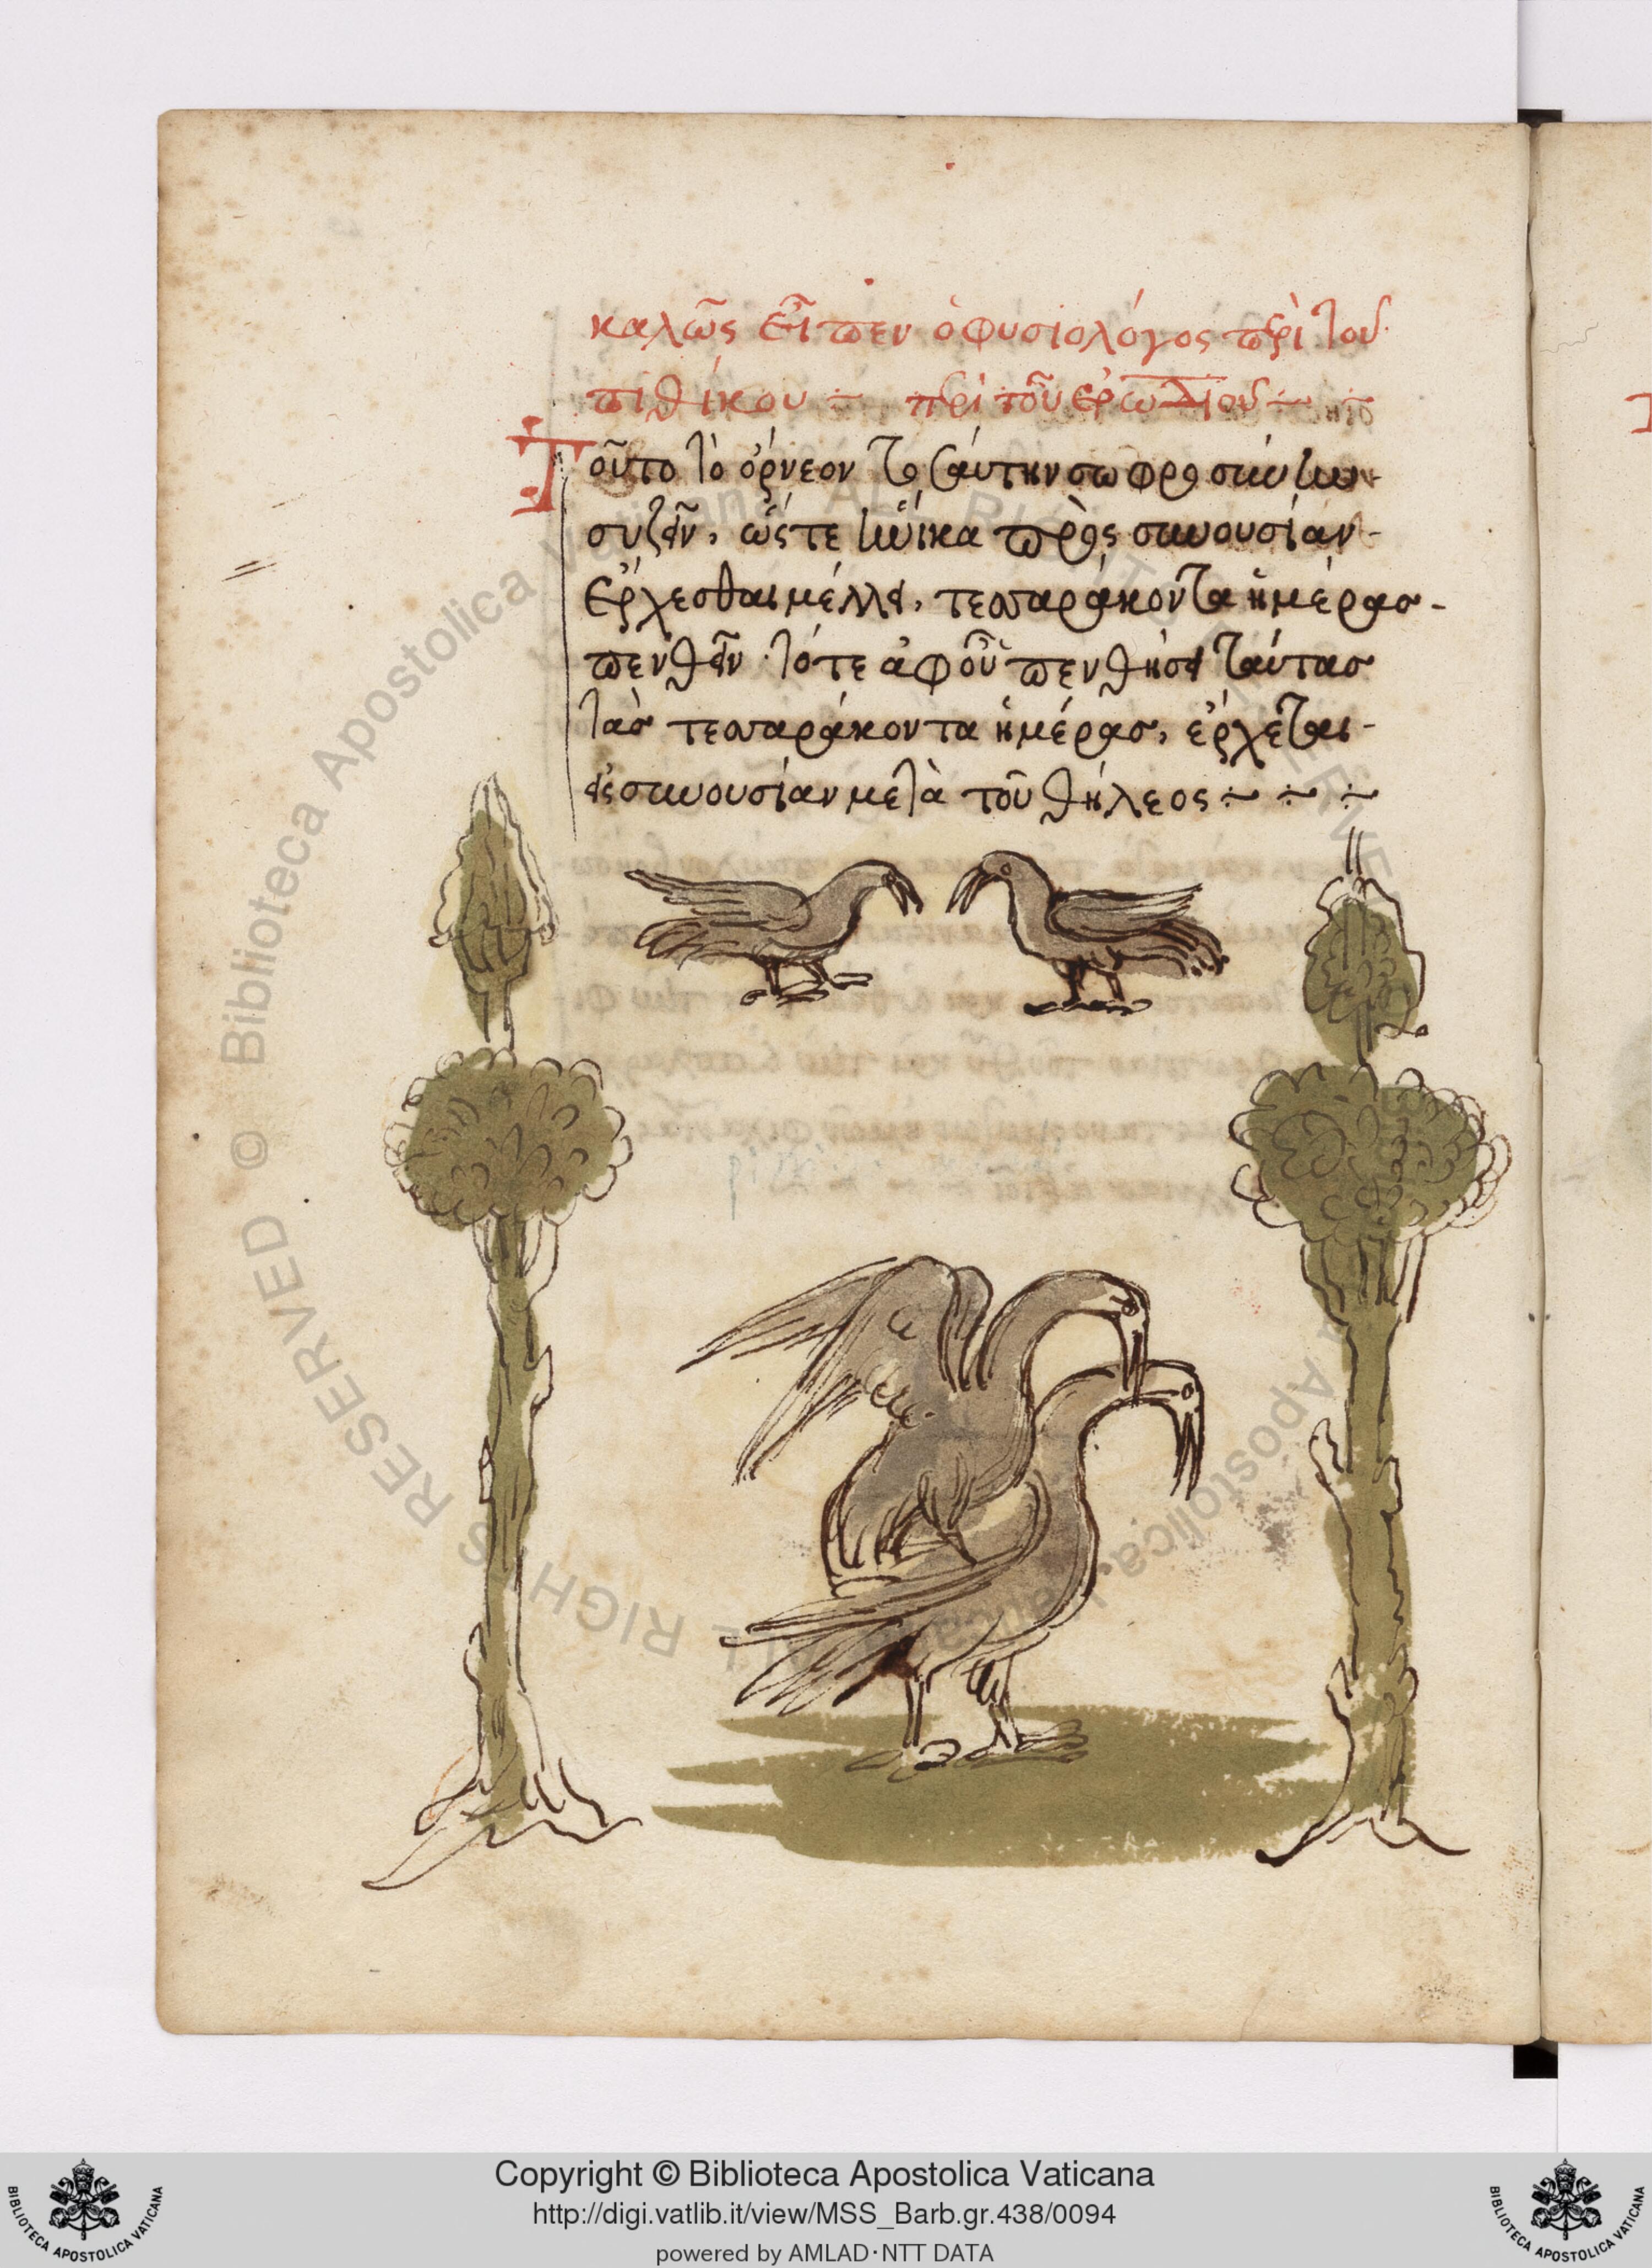 καλῶς εἶπεν ὁ φυσιολόγος περὶ τοῦ
πιθήκου περὶ τοῦ ἐρωδιοῦ
Τοῦτο τὸ ὄρνεον
συζεῖν, ὥστε ἡνίκα πρὸς συνουσίαν
ἔρχεσθαι μέλλει, τεσσαράκοντα ἡμέρας
πενθεῖν τότε ἀφοῦ πενθήσει ταύτας
τὰς τεσσαράκοντα ἡμέρας, ἔρχεται
εἰς συνουσίαν μετὰ τοῦ θήλεος
© Biblioteca Apostolica Vaticana ALL RIGHTS RESERVED
Copyright © Biblioteca Apostolica Vaticana
http://digi.vatlib.it/view/MSS_Barb.gr.438/0094
powered by AMLAD·NTT DATA
BIBLIOTECA APOSTOLICA VATICANA
BIBLIOTECA APOSTOLICA VATICANA